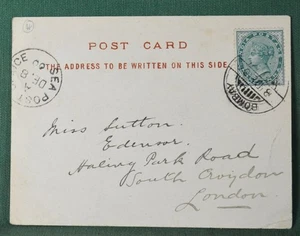 POST CARD
THE ADDRESS TO BE WRITTEN ON THIS SIDE.
SEA POST OFFICE
DE. 8
BOMBAY
Miss Sutton.
Edensor.
Haling Park Road
South Croydon
London.